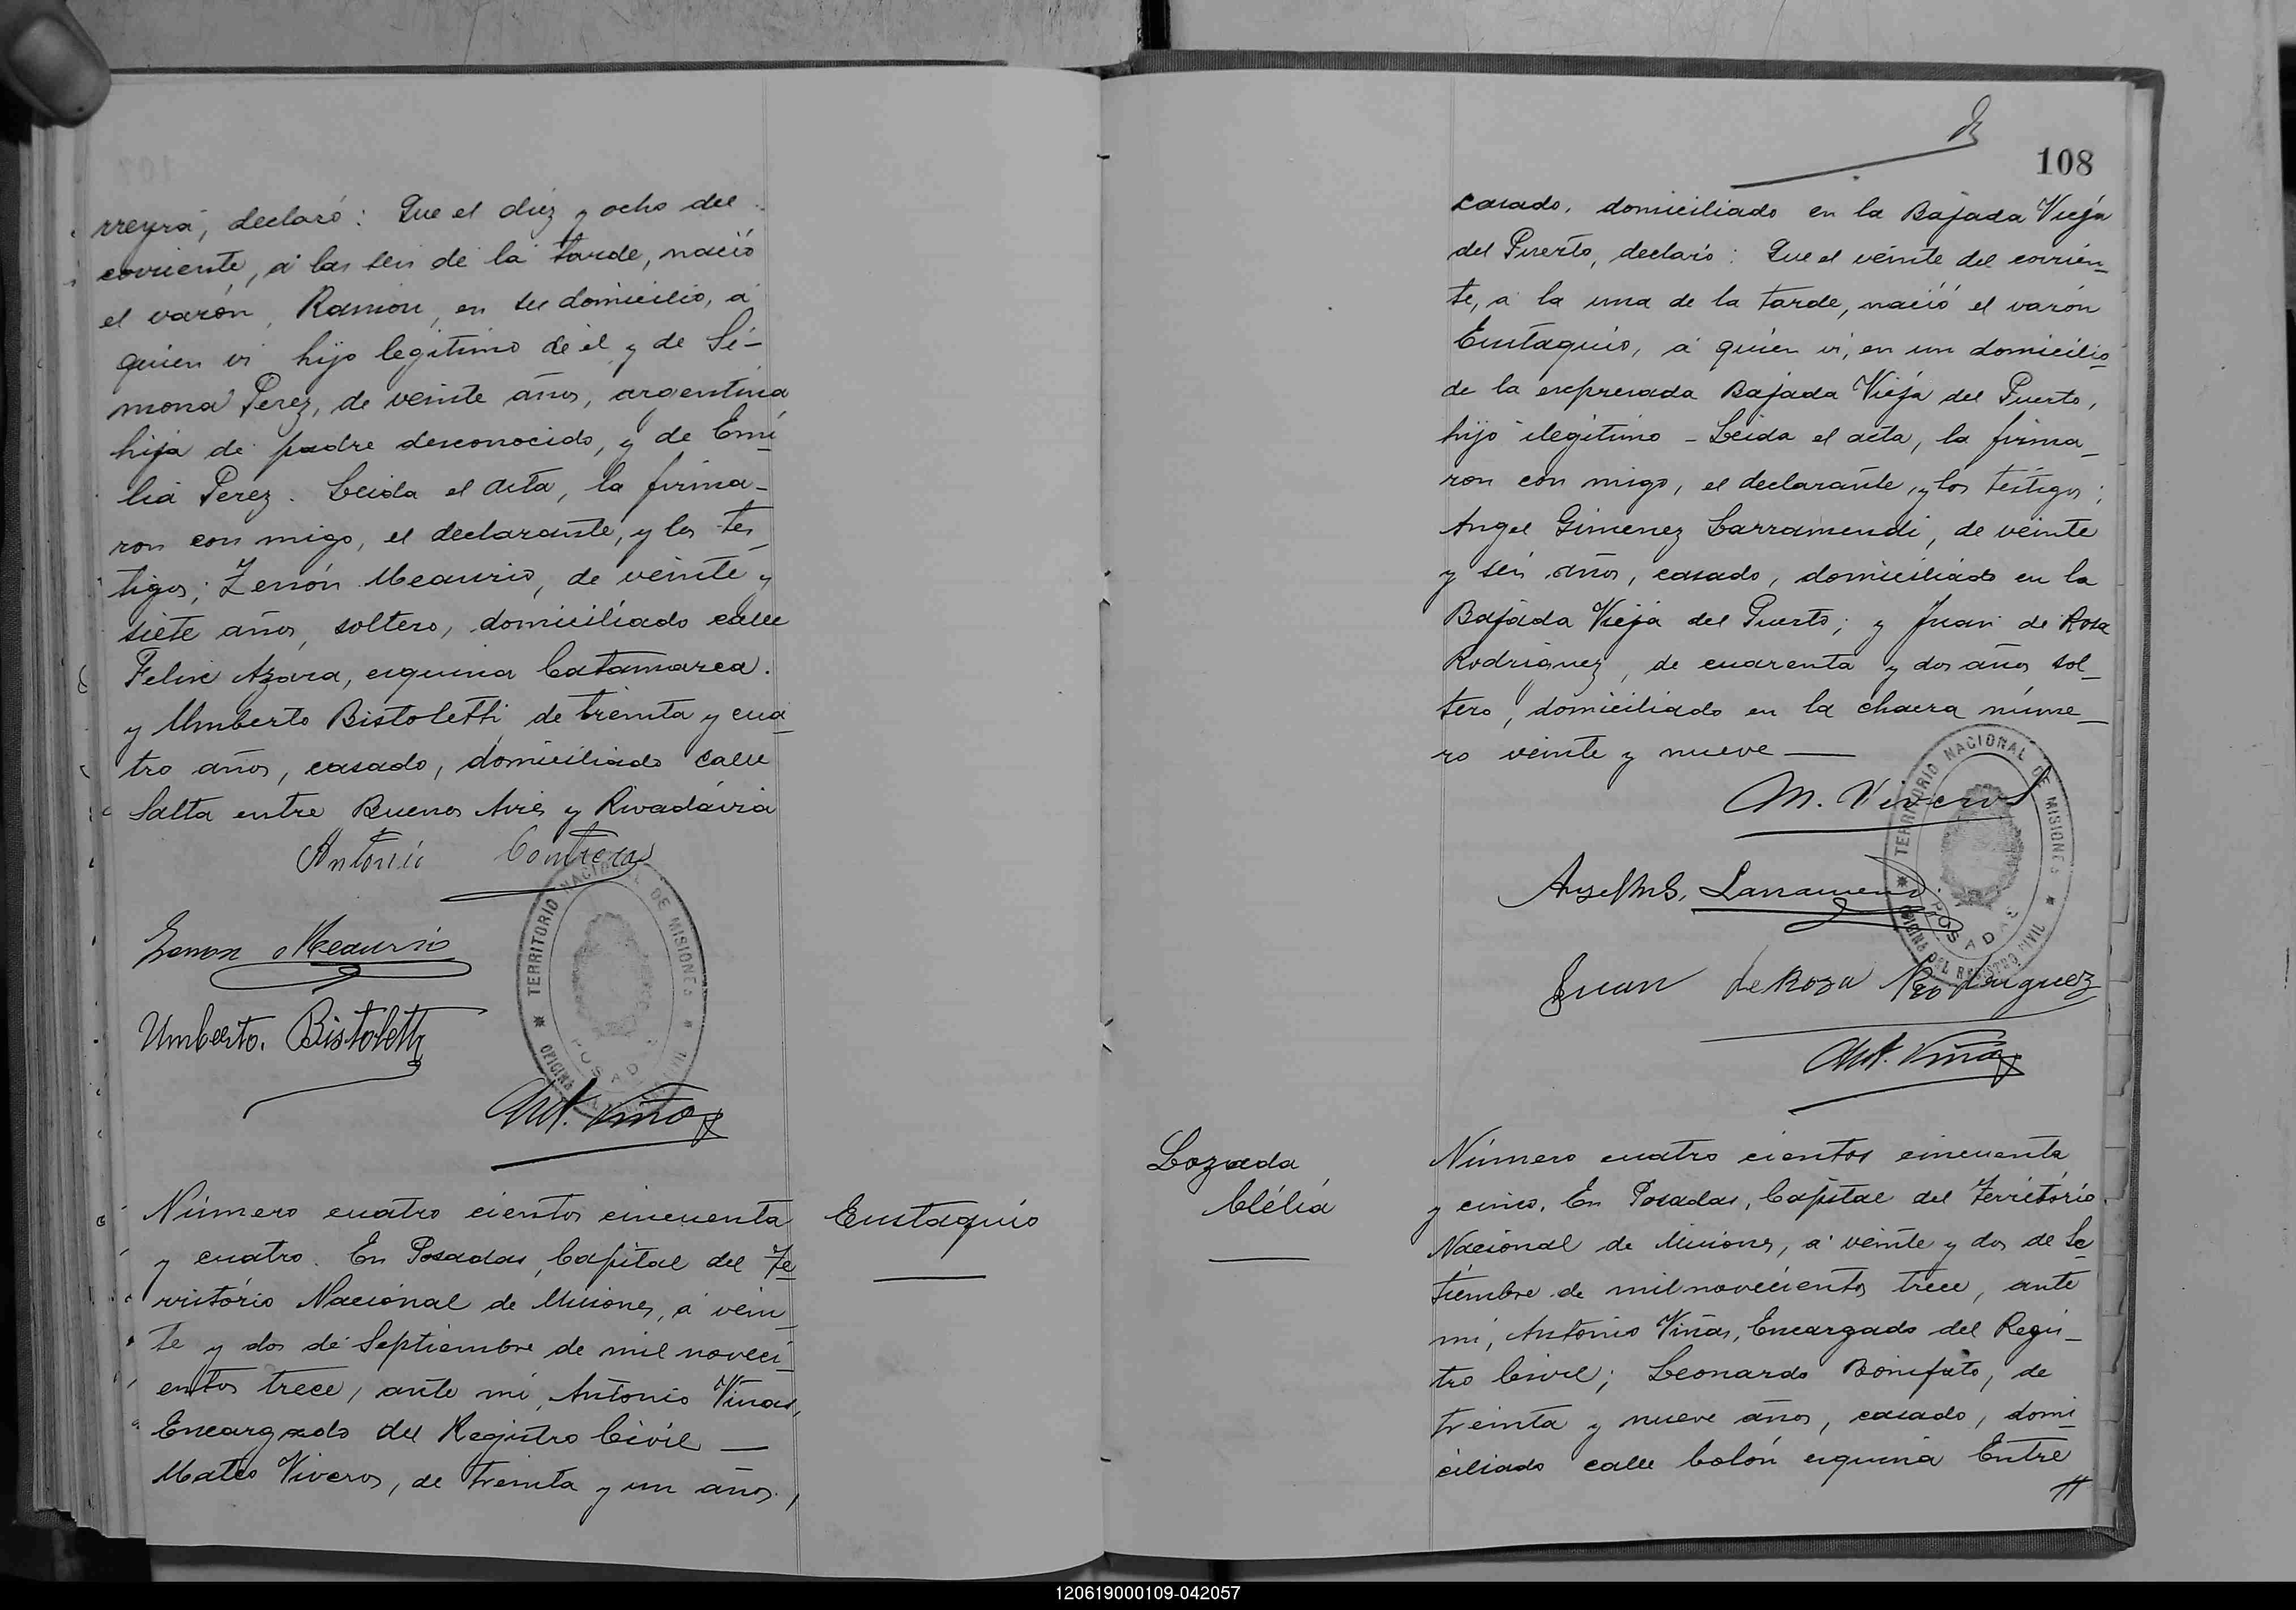 rreyra, declaró: Que el diez y ocho del
corriente, á las seis de la tarde, nació
el varón, Ramón, en su domicilio, á
quien vi hijo legítimo de él y de Si-
mona Perez, de veinte años, argentina
hija de padre desconocido, y de Emi
lia Perez. Leida el acta, la firma-
ron con migo, el declarante, y los tes
tigos; Zenón Meaurio, de veinte y
siete años, soltero, domiciliado calle
Felix Azara, esquina Catamarca.
y Umberto Bistoletti, de treinta y cua
tro años, casado, domiciliado calle
Salta entre Buenos Aires y Rivadavia
Antonio Contrera
Zenon Meaurio
Umberto Bistoletti
TERRITORIO NACIONAL DE MISIONES
OFICINA CIVIL
POSADAS
Ant. Viñas
Número cuatro cientos cincuenta
y cuatro. En Posadas, Capital del Te
rritório Nacional de Misiones, á vein
te y dos de Septiembre de mil noveci
entos trece, ante mi, Antonio Viñas,
Encargado del Registro Civil —
Mateo Viveros, de treinta y un años,
Eustaquio
108
casado, domiciliado en la Bajada Vieja
del Puerto, declaró: Que el veinte del corrien
te, á la una de la tarde, nació el varón
Eustaquio, á quien vi, en un domicilio
de la expresada Bajada Vieja del Puerto,
hijo ilegítimo - Leida el acta, la firma
ron con migo, el declarante, y los testigos;
Angel Gimenez Larramendi, de veinte
y seis años, casado, domiciliado en la
Bajada Vieja del Puerto; y Juan de Rosa
Rodriguez, de cuarenta y dos años sol
tero, domiciliado en la chacra núme
ro veinte y nueve —
M. Viveros
TERRITORIO NACIONAL DE MISIONES
OFICINA DEL REGISTRO CIVIL
POSADAS
Larramendi
Juan de Rosa Rodriguez
Ant. Viñas
Lozada
Clélia
Número cuatro cientos cincuenta
y cinco. En Posadas, Capital del Território
Nacional de Misiones, á veinte y dos de Se
tiembre de mil novecientos trece, ante
mi, Antonio Viñas, Encargado del Regis-
tro Civil; Leonardo Bonifato, de
treinta y nueve años, casado, domi
ciliado calle Colón esquina Entre
120619000109-042057